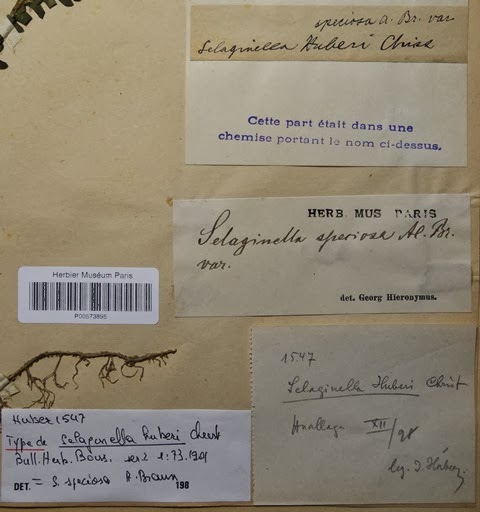 speciosa A. Br. var
Selaginella Huberi Christ
Cette part était dans une
chemise portant le nom ci-dessus.
HERB. MUS PARIS
Selaginella speciosa Al. Br.
var.
det. Georg Hieronymus.
Herbier Muséum Paris
P00573895
1547
Selaginella Huberi Christ
Huallaga XII/98
leg. J. Huber
Huber 1547
Type de Selaginella huberi Christ
Bull. Herb. Boiss. ser 2 1:73.1901
DET. = S. speciosa A. Braun 198